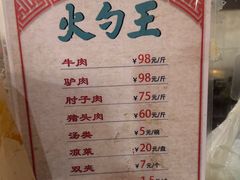 火勺王
牛肉 ¥98元/斤
驴肉 ¥98元/斤
肘子肉 ¥75元/斤
猪头肉 ¥60元/斤
汤类 ¥5元/碗
凉菜 ¥20元/盘
双夹 ¥7元/个